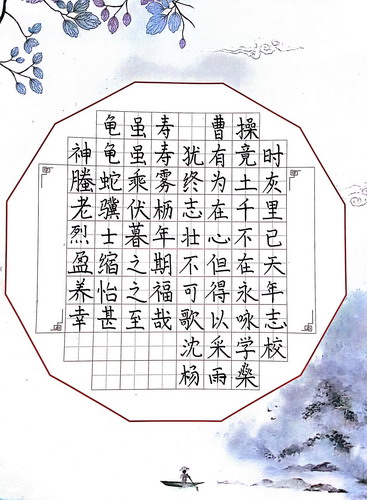 龟虽寿 曹操
神龟虽寿犹有竟时
螣蛇乘雾终为土灰
老骥伏枥志在千里
烈士暮年壮心不已
盈缩之期不但在天
养怡之福可得永年
幸甚至哉歌以咏志
沈采学校
杨雨桑